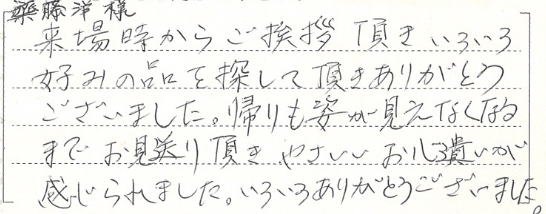 藤洋様
来場時からご挨拶頂きいろいろ
好みの品を探して頂きありがとう
ございました。帰りも姿が見えなくなる
までお見送り頂きやさいいお心遣いが
感じられました。いろいろありがとうございました。